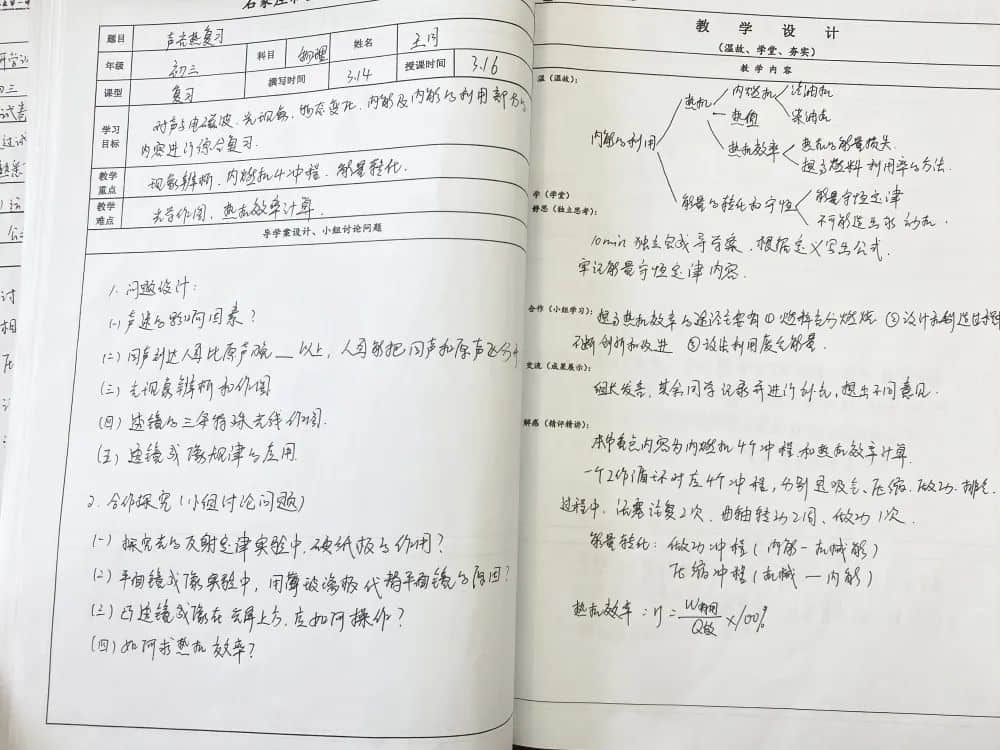 题目 声光热复习
年级 初三 科目 物理 姓名 王闪
课型 复习 撰写时间 3.14 授课时间 3.16
学习目标 对声与电磁波、光现象、物态变化、内能及内能的利用部分的
内容进行综合复习.
教学重点 现象辨析、内燃机4冲程、能量转化.
教学难点 光学作图，热机效率计算.
导学案设计、小组讨论问题
1. 问题设计：
(一) 声速的影响因素？
(二) 回声到达人耳比原声晚__以上，人耳能把回声和原声区分开
(三) 光现象辨析和作图
(四) 透镜的三条特殊光线作图.
(五) 透镜成像规律的应用.
2. 合作探究（小组讨论问题）
(一) 探究光的反射定律实验中，硬纸板的作用？
(2) 平面镜成像实验中，用薄玻璃板代替平面镜的原因？
(三) 凸透镜成像在光屏上方，应如何操作？
(四) 如何求热机效率？
教 学 设 计
（温故、学堂、夯实）
教 学 内 容
温（温故）：
内能的利用
热机
内燃机
汽油机
柴油机
热值
热机效率
热机的能量损失.
提高燃料利用率的方法.
能量的转化和守恒
能量守恒定律
不可能造出永动机.
学（学堂）
静思（独立思考）：
10min 独立完成导学案，根据定义写出公式.
牢记能量守恒定律内容.
合作（小组学习）：提高热机效率的途径主要有 ① 燃料充分燃烧 ② 设计和制造过程中
不断创新和改进 ③ 设法利用废气能量.
交流（成果展示）：
组长发言，其余同学记录并进行补充，提出不同意见.
解惑（精评精讲）：
本节重点内容为内燃机4个冲程和热机效率计算.
一个工作循环对应4个冲程，分别是吸气、压缩、做功、排气.
过程中，活塞往复2次、曲轴转动2周、做功1次.
能量转化：做功冲程（内能—机械能）
压缩冲程（机械—内能）
热机效率：η = W有用/Q放 ×100%